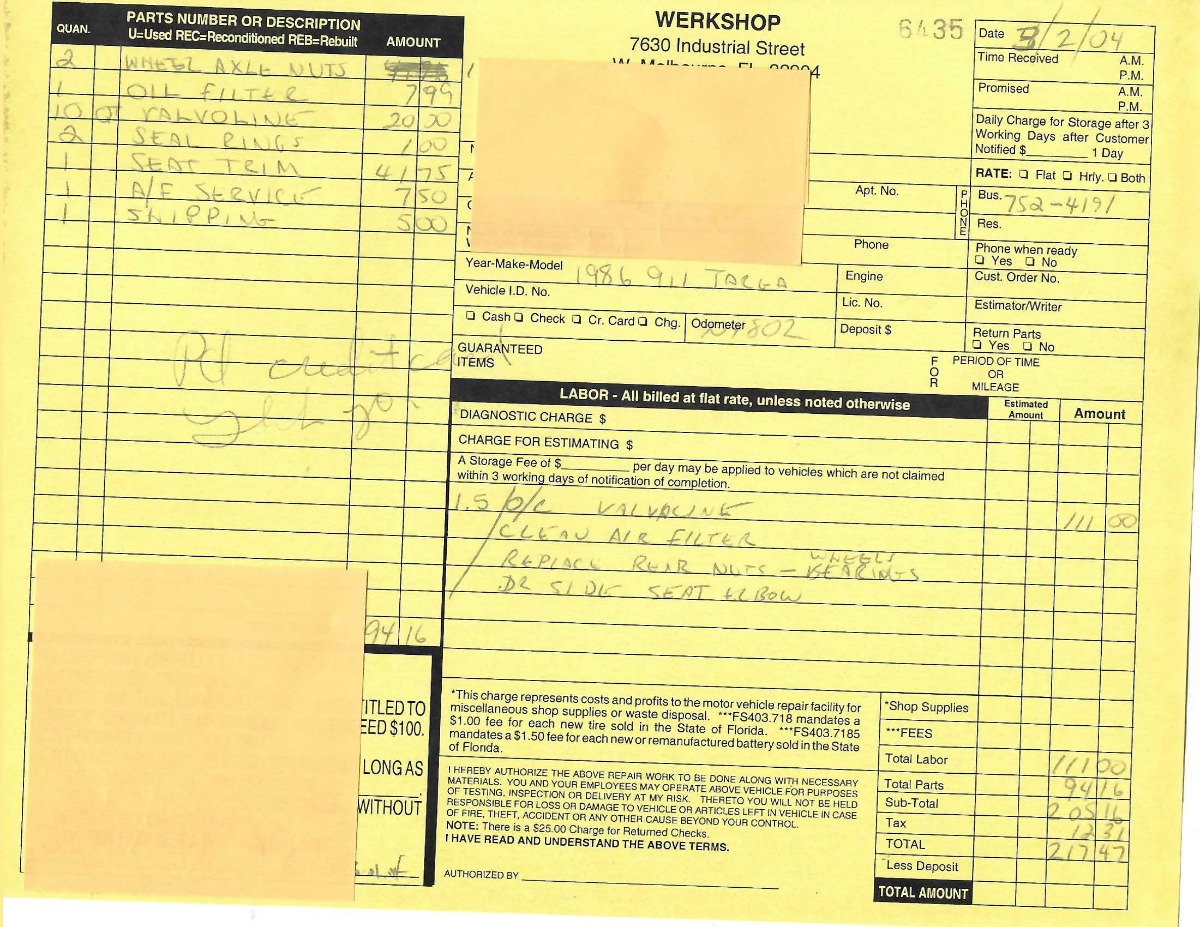 QUAN.
PARTS NUMBER OR DESCRIPTION
U=Used REC=Reconditioned REB=Rebuilt
AMOUNT
2 WHEEL AXLE NUTS
1 OIL FILTER 7 99
10 QT VALVOLINE 20 00
2 SEAL RINGS 1 00
1 SEAT TRIM 41 75
1 A/F SERVICE 7 50
1 SHIPPING 5 00
Pd credit card
94 16
TITLED TO
EED $100.
LONG AS
WITHOUT
WERKSHOP
7630 Industrial Street
W. Melbourne, FL 32904
6435
Date 3/2/04
Time Received A.M.
P.M.
Promised A.M.
P.M.
Daily Charge for Storage after 3
Working Days after Customer
Notified $ 1 Day
RATE: ❑ Flat ❑ Hrly. ❑ Both
Apt. No.
PHONE
Bus. 752-4191
Res.
Phone
Phone when ready
❑ Yes ❑ No
Year-Make-Model 1986 911 TARGA
Engine
Cust. Order No.
Vehicle I.D. No.
Lic. No.
Estimator/Writer
❑ Cash ❑ Check ❑ Cr. Card ❑ Chg.
Odometer
Deposit $
Return Parts
❑ Yes ❑ No
GUARANTEED
ITEMS
FOR
PERIOD OF TIME
OR
MILEAGE
LABOR - All billed at flat rate, unless noted otherwise
Estimated
Amount
Amount
DIAGNOSTIC CHARGE $
CHARGE FOR ESTIMATING $
A Storage Fee of $ per day may be applied to vehicles which are not claimed
within 3 working days of notification of completion.
1.5 O/C VALVOLINE 111 00
CLEAN AIR FILTER
REPLACE REAR NUTS - WHEELS BEARINGS
DR SIDE SEAT ELBOW
*This charge represents costs and profits to the motor vehicle repair facility for
miscellaneous shop supplies or waste disposal. ***FS403.718 mandates a
$1.00 fee for each new tire sold in the State of Florida. ***FS403.7185
mandates a $1.50 fee for each new or remanufactured battery sold in the State
of Florida.
I HEREBY AUTHORIZE THE ABOVE REPAIR WORK TO BE DONE ALONG WITH NECESSARY
MATERIALS. YOU AND YOUR EMPLOYEES MAY OPERATE ABOVE VEHICLE FOR PURPOSES
OF TESTING, INSPECTION OR DELIVERY AT MY RISK. THERETO YOU WILL NOT BE HELD
RESPONSIBLE FOR LOSS OR DAMAGE TO VEHICLE OR ARTICLES LEFT IN VEHICLE IN CASE
OF FIRE, THEFT, ACCIDENT OR ANY OTHER CAUSE BEYOND YOUR CONTROL.
NOTE: There is a $25.00 Charge for Returned Checks.
I HAVE READ AND UNDERSTAND THE ABOVE TERMS.
AUTHORIZED BY
*Shop Supplies
***FEES
Total Labor 111 00
Total Parts 94 16
Sub-Total 205 16
Tax 12 31
TOTAL 217 47
Less Deposit
TOTAL AMOUNT